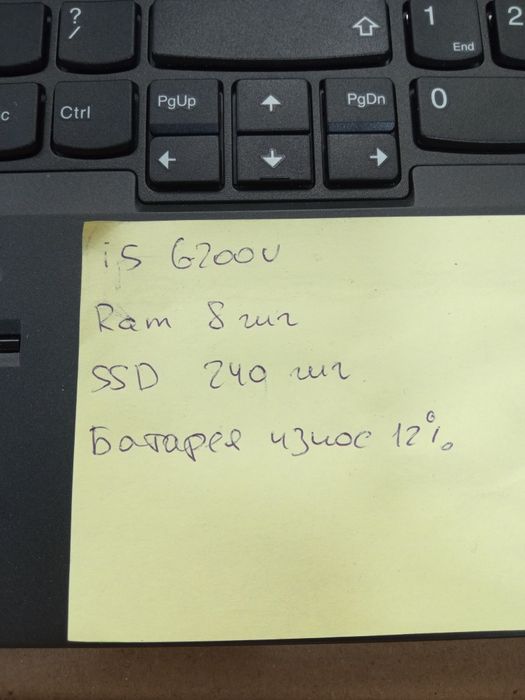 ?
/
1
End
2
Ctrl
PgUp
PgDn
0
i5 6200u
Ram 8 гиг
SSD 240 гиг
Батарея износ 12%